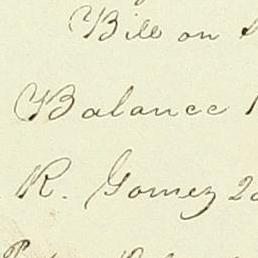 Bill on
Balance
R. Gomez 20